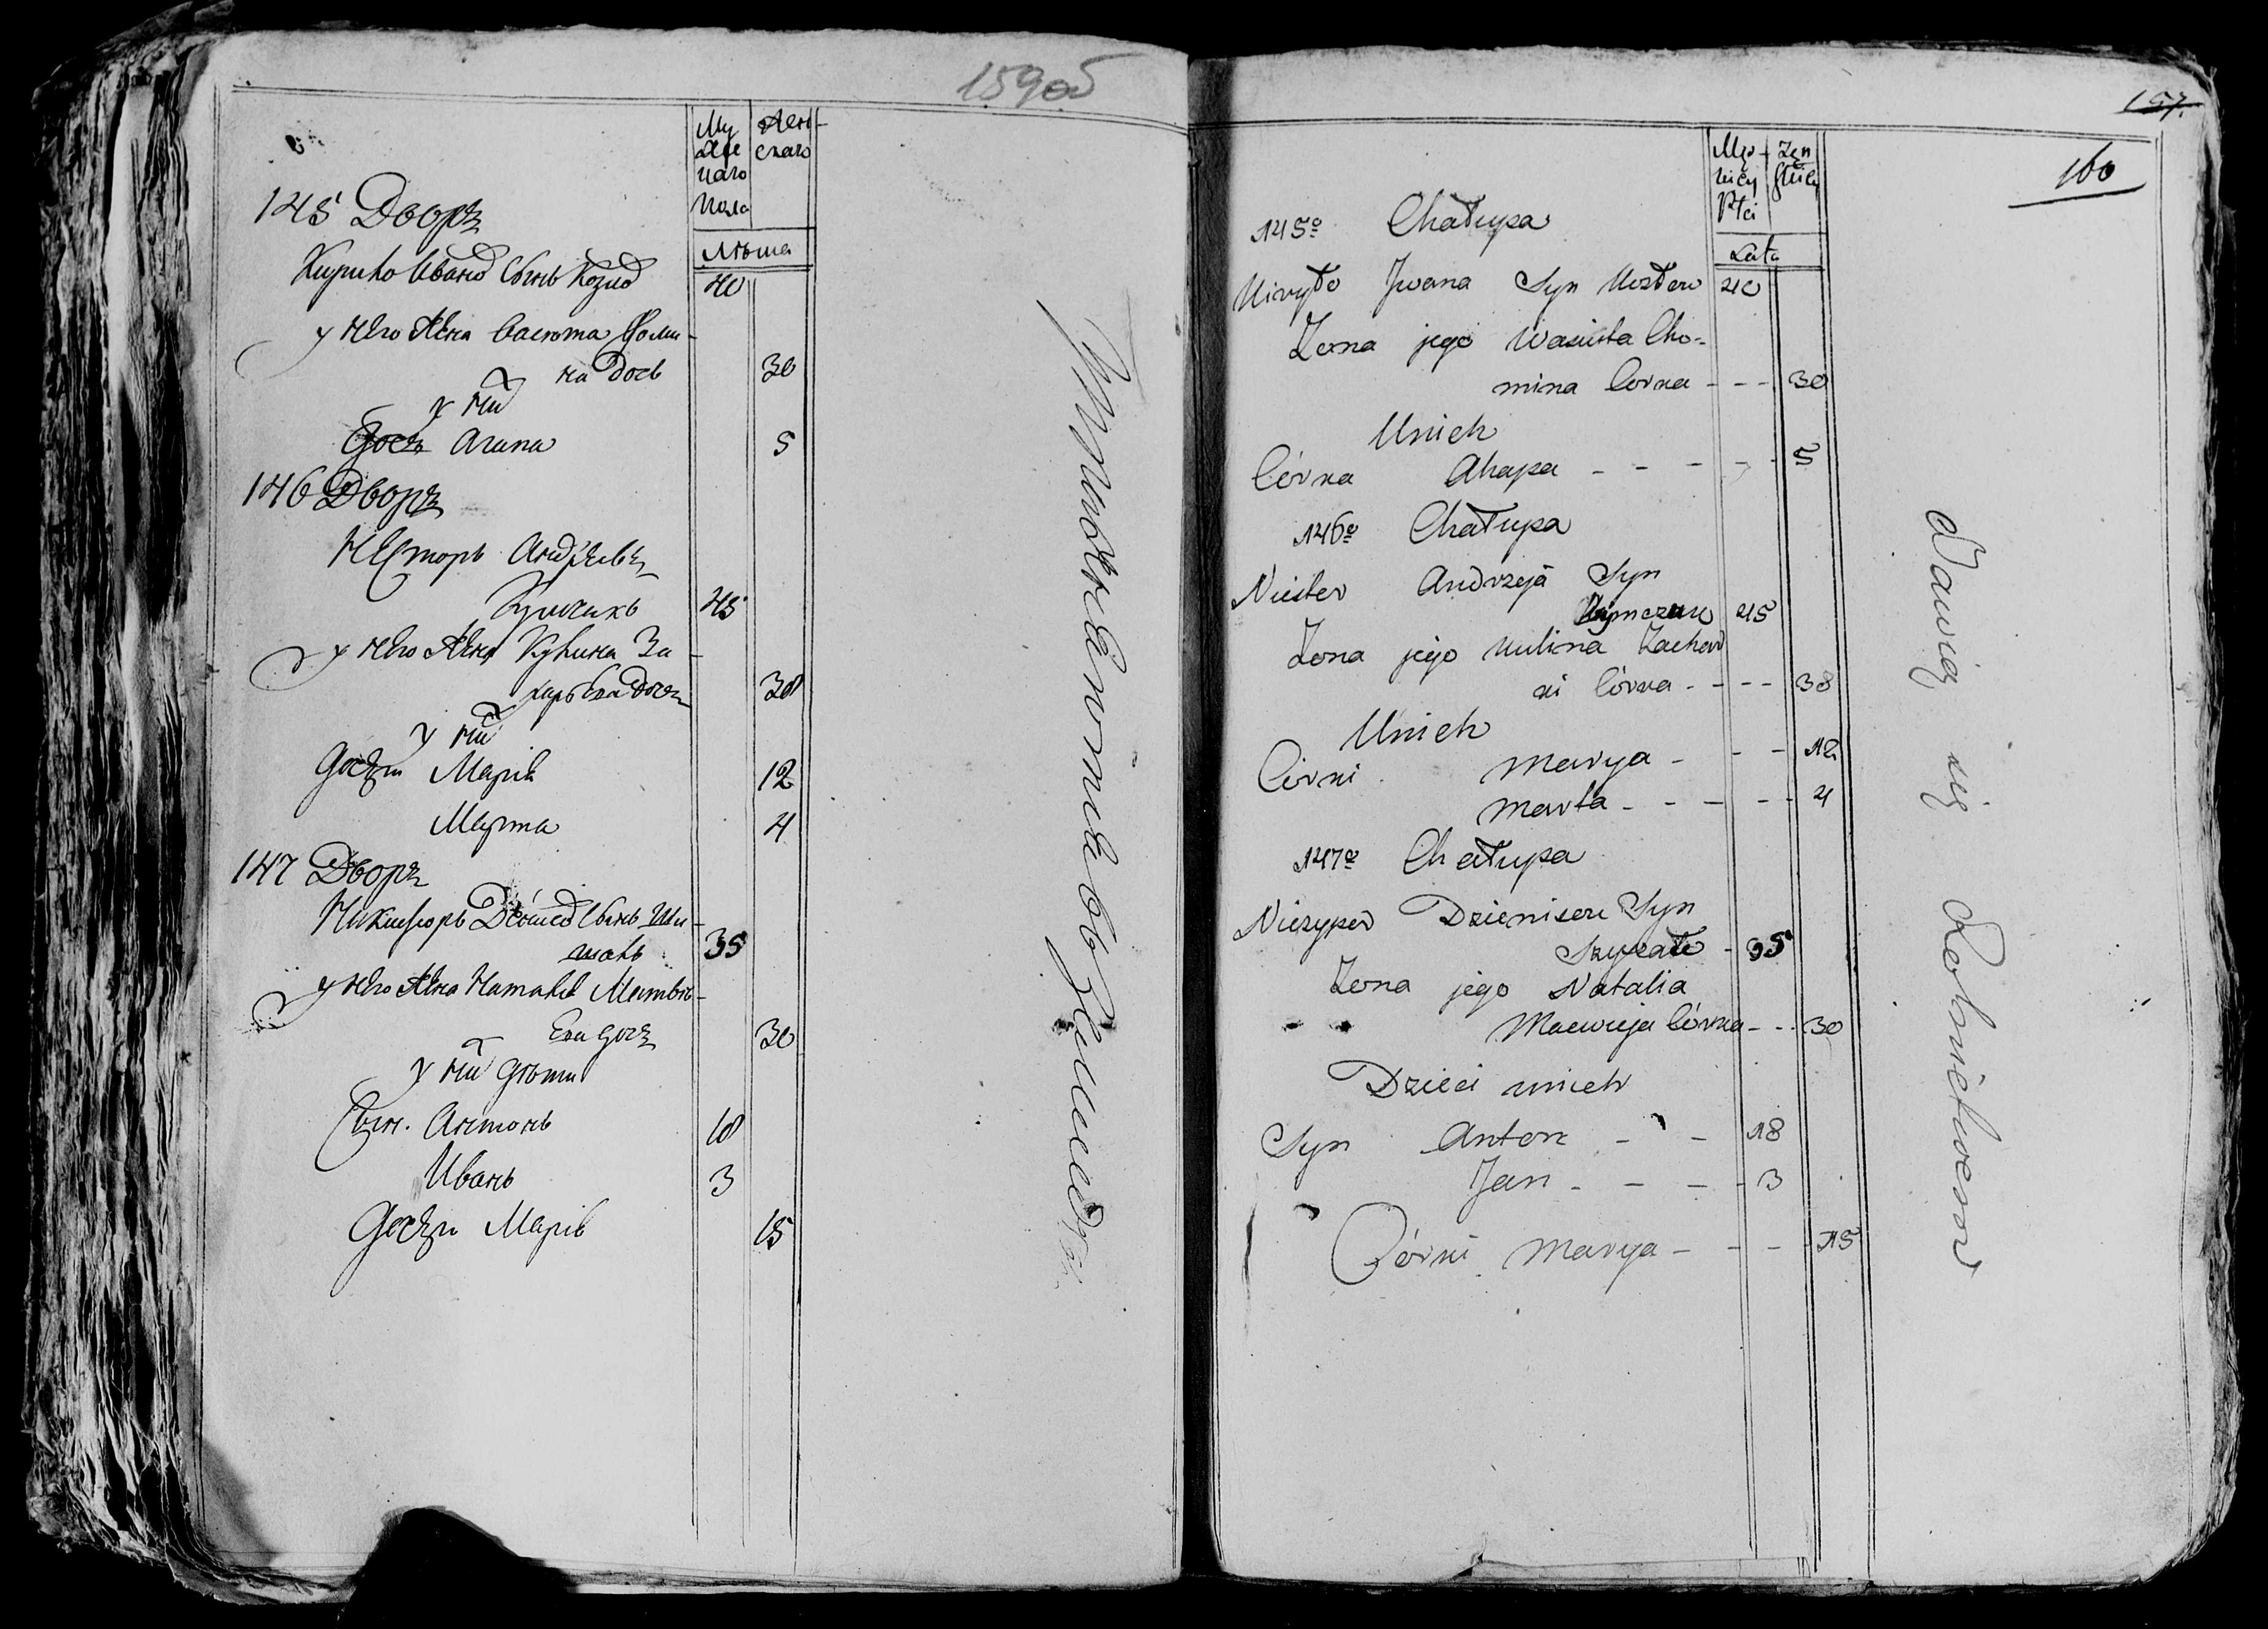 159об
Му
же
наго
пола
Жен-
скаго
Лѣта
145 Дворъ
Кирило Ивано Сынъ Козло 40
у него Жена Васюта Фоми-
на Дочь 30
у ни
Дочь Агапа 5
146 Дворъ
Несторъ Андреевъ
45
у него Жена Кулина За-
харьева дочь 38
у ни
Дочери Марія 12
Марта 4
147 Дворъ
Никифоръ Денисо Сынъ Ши-
шать 35
у него Жена Наталія Матвѣ-
ева дочь 30
у ни дѣти
Сын. Антонъ 18
Иванъ 3
Дочери Марія 15
157.
160
Męz-
kiey
Płci
Zęn
skiey
Lata
145o Chałupa
Kiryło Jwana Syn Kozłow 40
Zona jego Wasiuta Cho-
mina Corka - - - 30
U nich
Córka Ahapa - - - - - 5
146o Chałupa
Niester Andrzeja Syn
45
Zona jego Kulina Zachar
ki Córka - - - - 38
U nich
Córki Marya - - - 12
Marta - - - - - 4
147o Chałupa
Niczyper Dzienisow Syn
35
Zona jego Natalia
Macwieja Córka - - 30
Dzieci u nich
Syn Anton - - - 18
Jan - - - - 3
Córki Marya - - - - 15